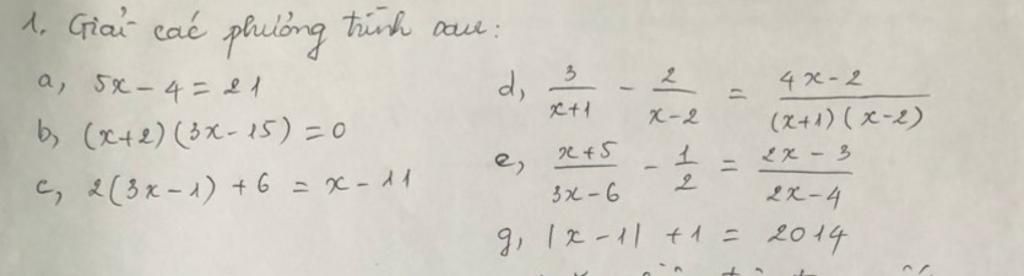 1. Giải các phương trình sau:
a, 5x - 4 = 21
b, (x+2)(3x-15) = 0
c, 2(3x-1) + 6 = x - 11
d, 3/(x+1) - 2/(x-2) = (4x-2)/((x+1)(x-2))
e, (x+5)/(3x-6) - 1/2 = (2x-3)/(2x-4)
g, |x-1| + 1 = 2014